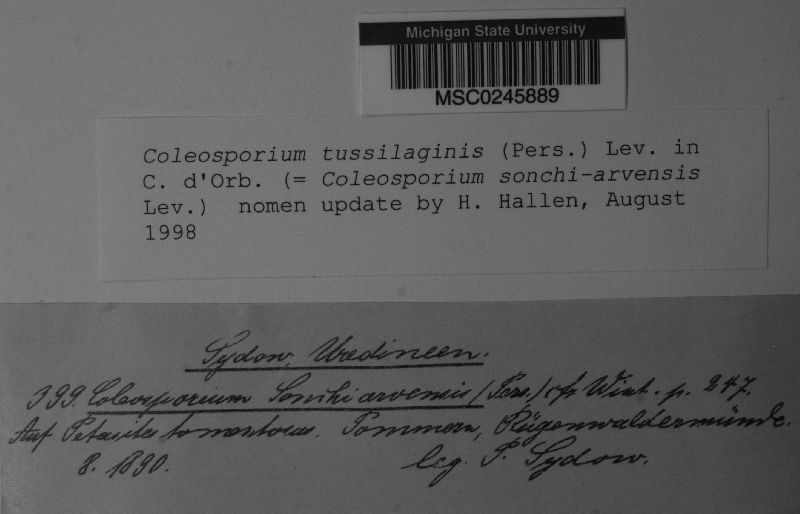 Michigan State University
MSC0245889
Coleosporium tussilaginis (Pers.) Lev. in
C. d'Orb. (= Coleosporium sonchi-arvensis
Lev.) nomen update by H. Hallen, August
1998
Sydow, Uredineen.
399. Coleosporium Sonchi arvensis (Pers.) cfr Wint. p. 247.
Auf Petasites tomentosus. Pommern, Rügenwaldermünde.
8. 1890. leg. P. Sydow.